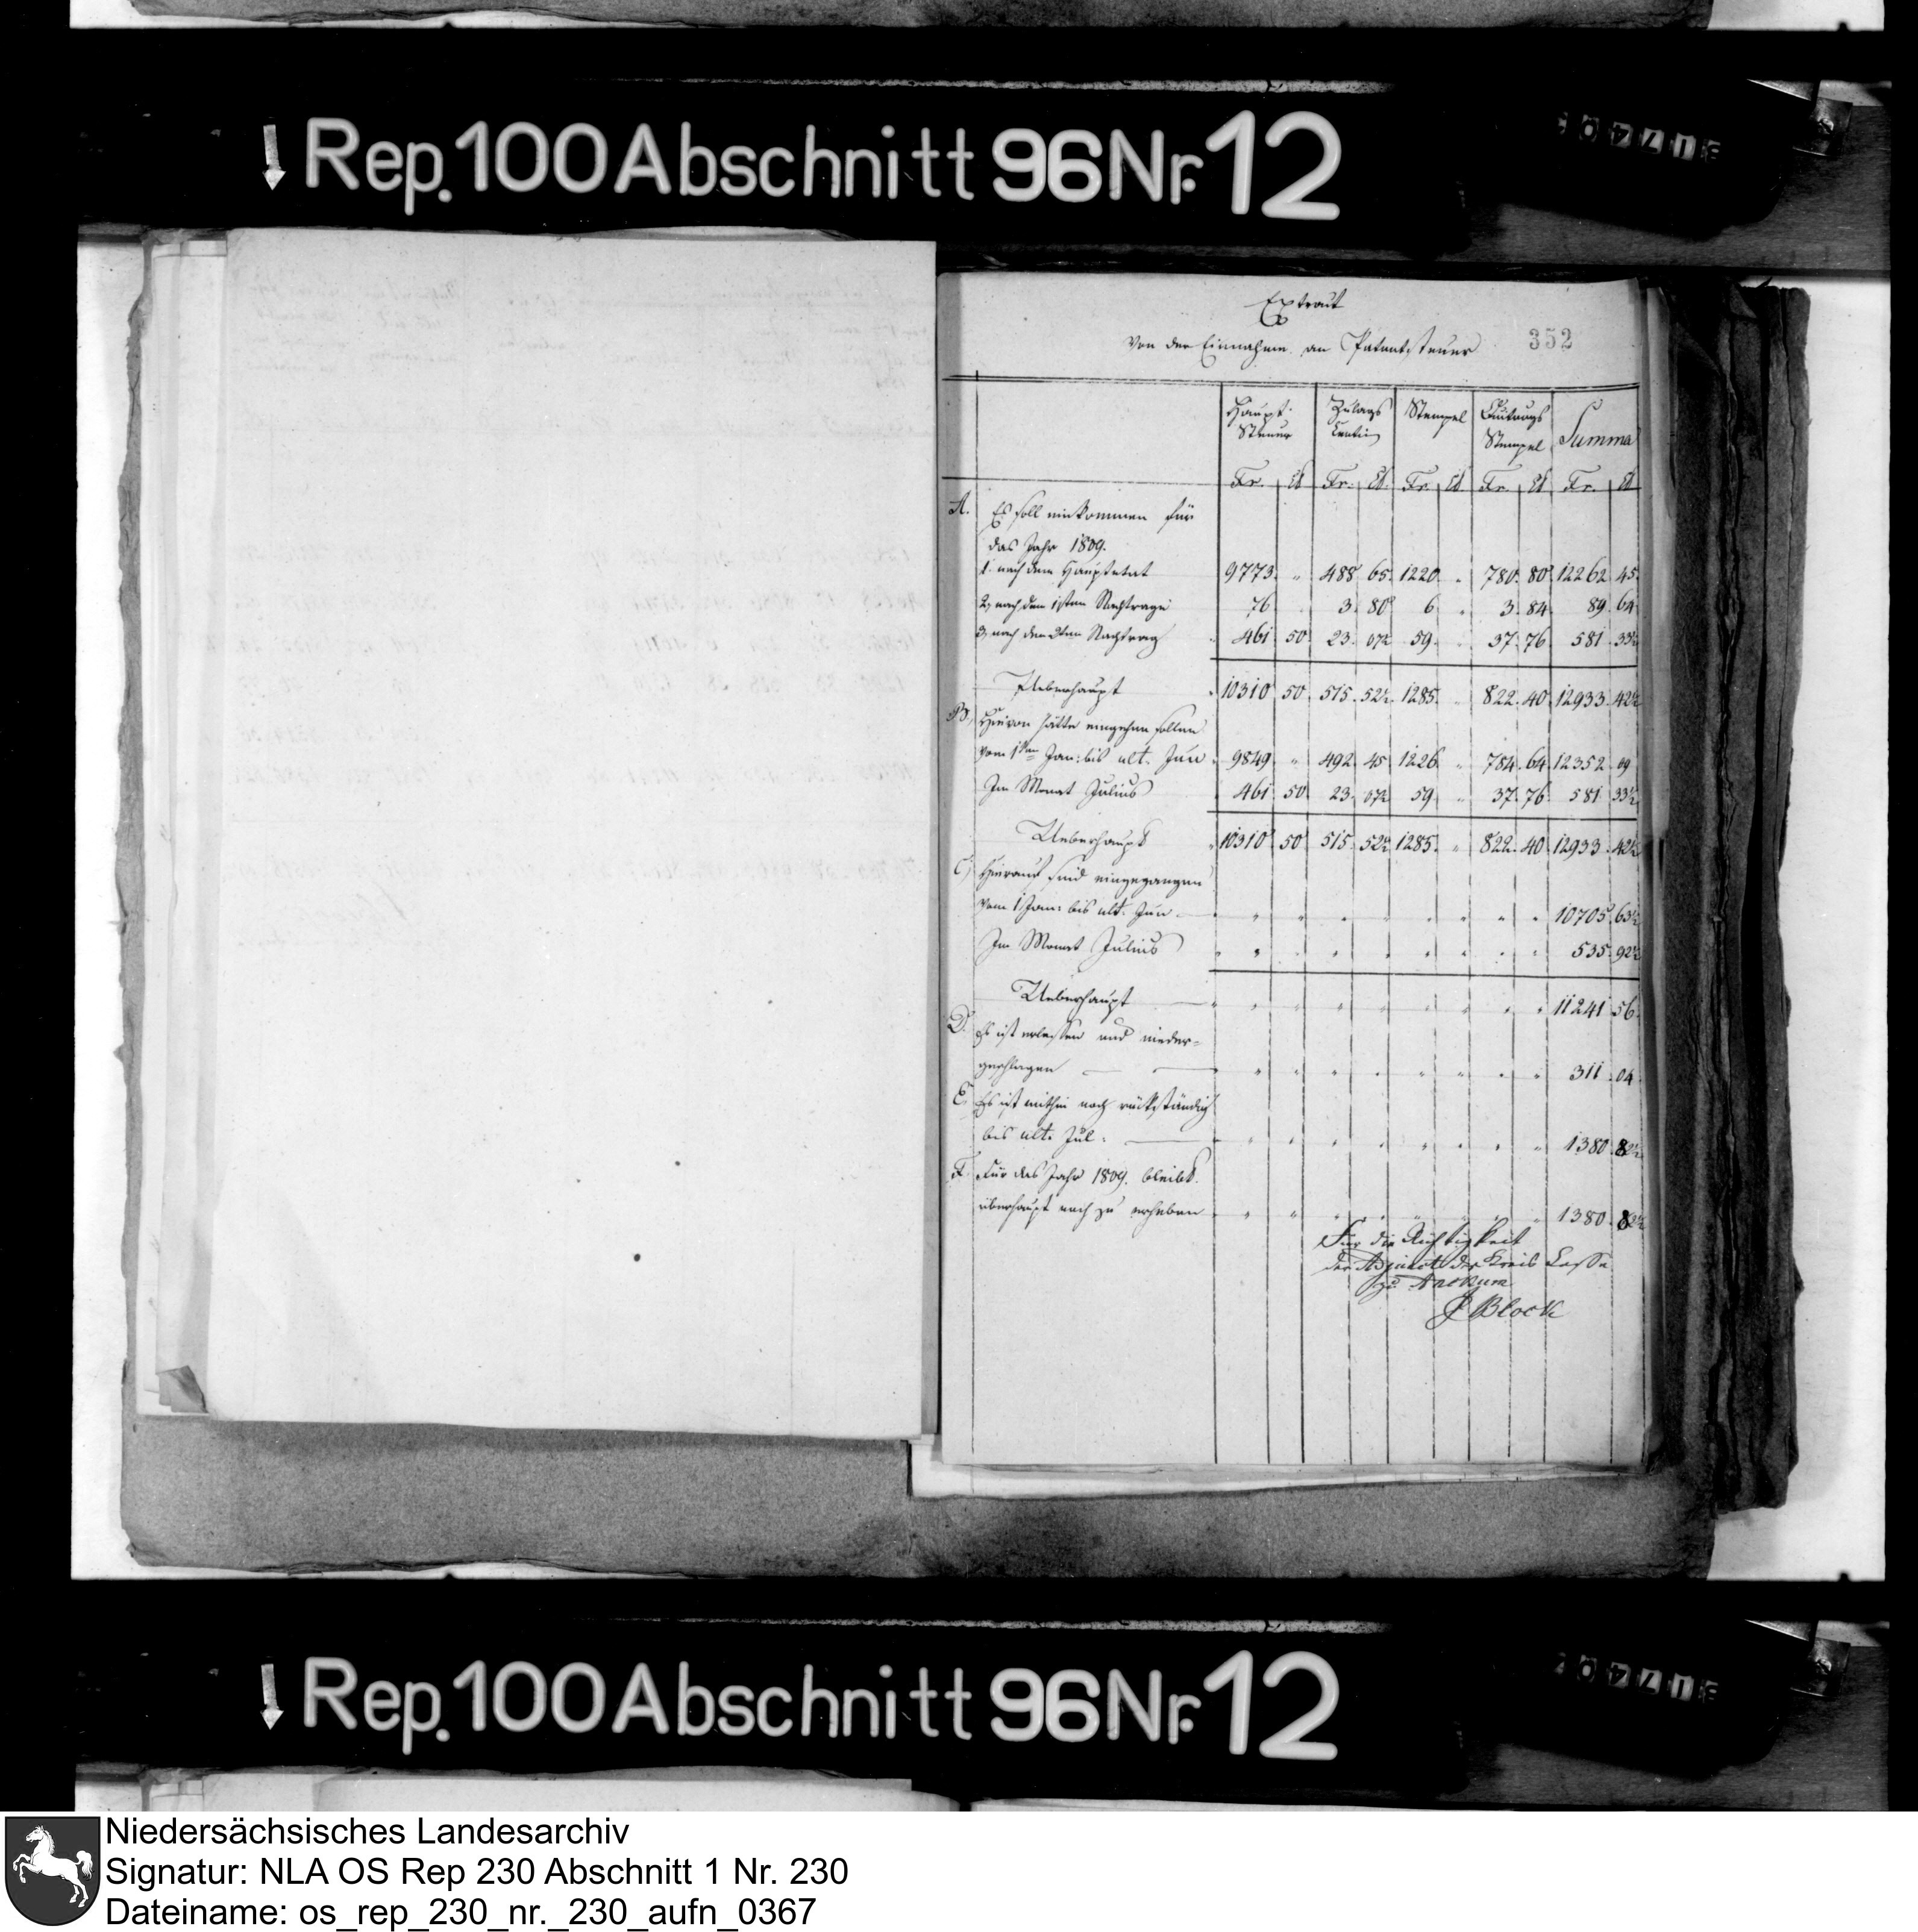 Rep. 100 Abschnitt 96 Nr. 12
Extract
von der Einnahme an Patentsteuer
352
Haupt- Steuer | Zulags Centim | Stempel | Quittungs Stempel | Summa
Fr. | Ct | Fr. | Ct. | Fr. | Ct | Fr. | Ct | Fr. | Ct
A. Es soll einkommen für
das Jahr 1809.
1. nach dem Hauptetat 9773. „ 488 65. 1220. „ 780. 80 12262 45.
2, nach dem 1sten Nachtrage 76 „ 3. 80 6 „ 3. 84. 89. 64
3, nach dem 2ten Nachtrag 461 50 23. 07½ 59. „ 37. 76. 581 33½
Ueberhaupt 10310 50. 515. 52½. 1285. „ 822. 40. 12933. 42½
B, Hievon hätte eingehen sollen
vom 1ten Jan: bis ult. Jun 9849. „ 492. 45 1226 „ 784. 64. 12352. 09
Im Monat Julius 461 50 23. 07½ 59 „ 37. 76. 581 33½
Ueberhaupt 10310 50 515. 52½ 1285. „ 822. 40. 12933. 42½
C, Hierauf sind eingegangen
vom 1 Jan: bis ult. Jun 10705. 63½
Im Monat Julius 535. 92½
Ueberhaupt 11241 56.
D. Es ist erlassen und nieder-
geschlagen 311. 04
E, Es ist mithin noch rückständig
bis ult. Jul: 1380. 82½
F. Für das Jahr 1809. bleibt
überhaupt noch zu erheben 1380. 82½
Für die Richtigkeit
der Adjunct der Kreis Casse
zu Ankum
Block
Rep. 100 Abschnitt 96 Nr. 12
Niedersächsisches Landesarchiv
Signatur: NLA OS Rep 230 Abschnitt 1 Nr. 230
Dateiname: os_rep_230_nr._230_aufn_0367